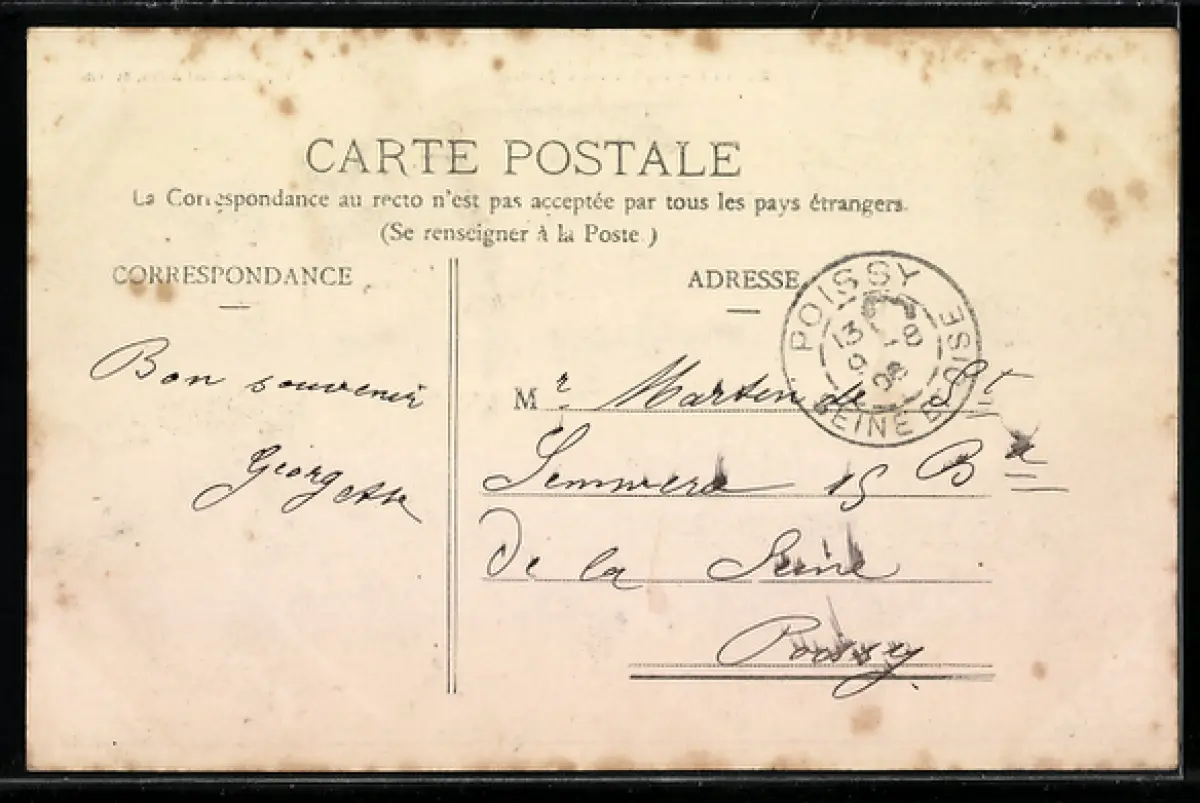 CARTE POSTALE
La Correspondance au recto n'est pas acceptée par tous les pays étrangers.
(Se renseigner à la Poste)
CORRESPONDANCE
ADRESSE
POISSY
13 -8
9
08
SEINE ET OISE
Bon souvenir
Georgette
Mr Marten de St
15 Bd
de la Seine
Poissy